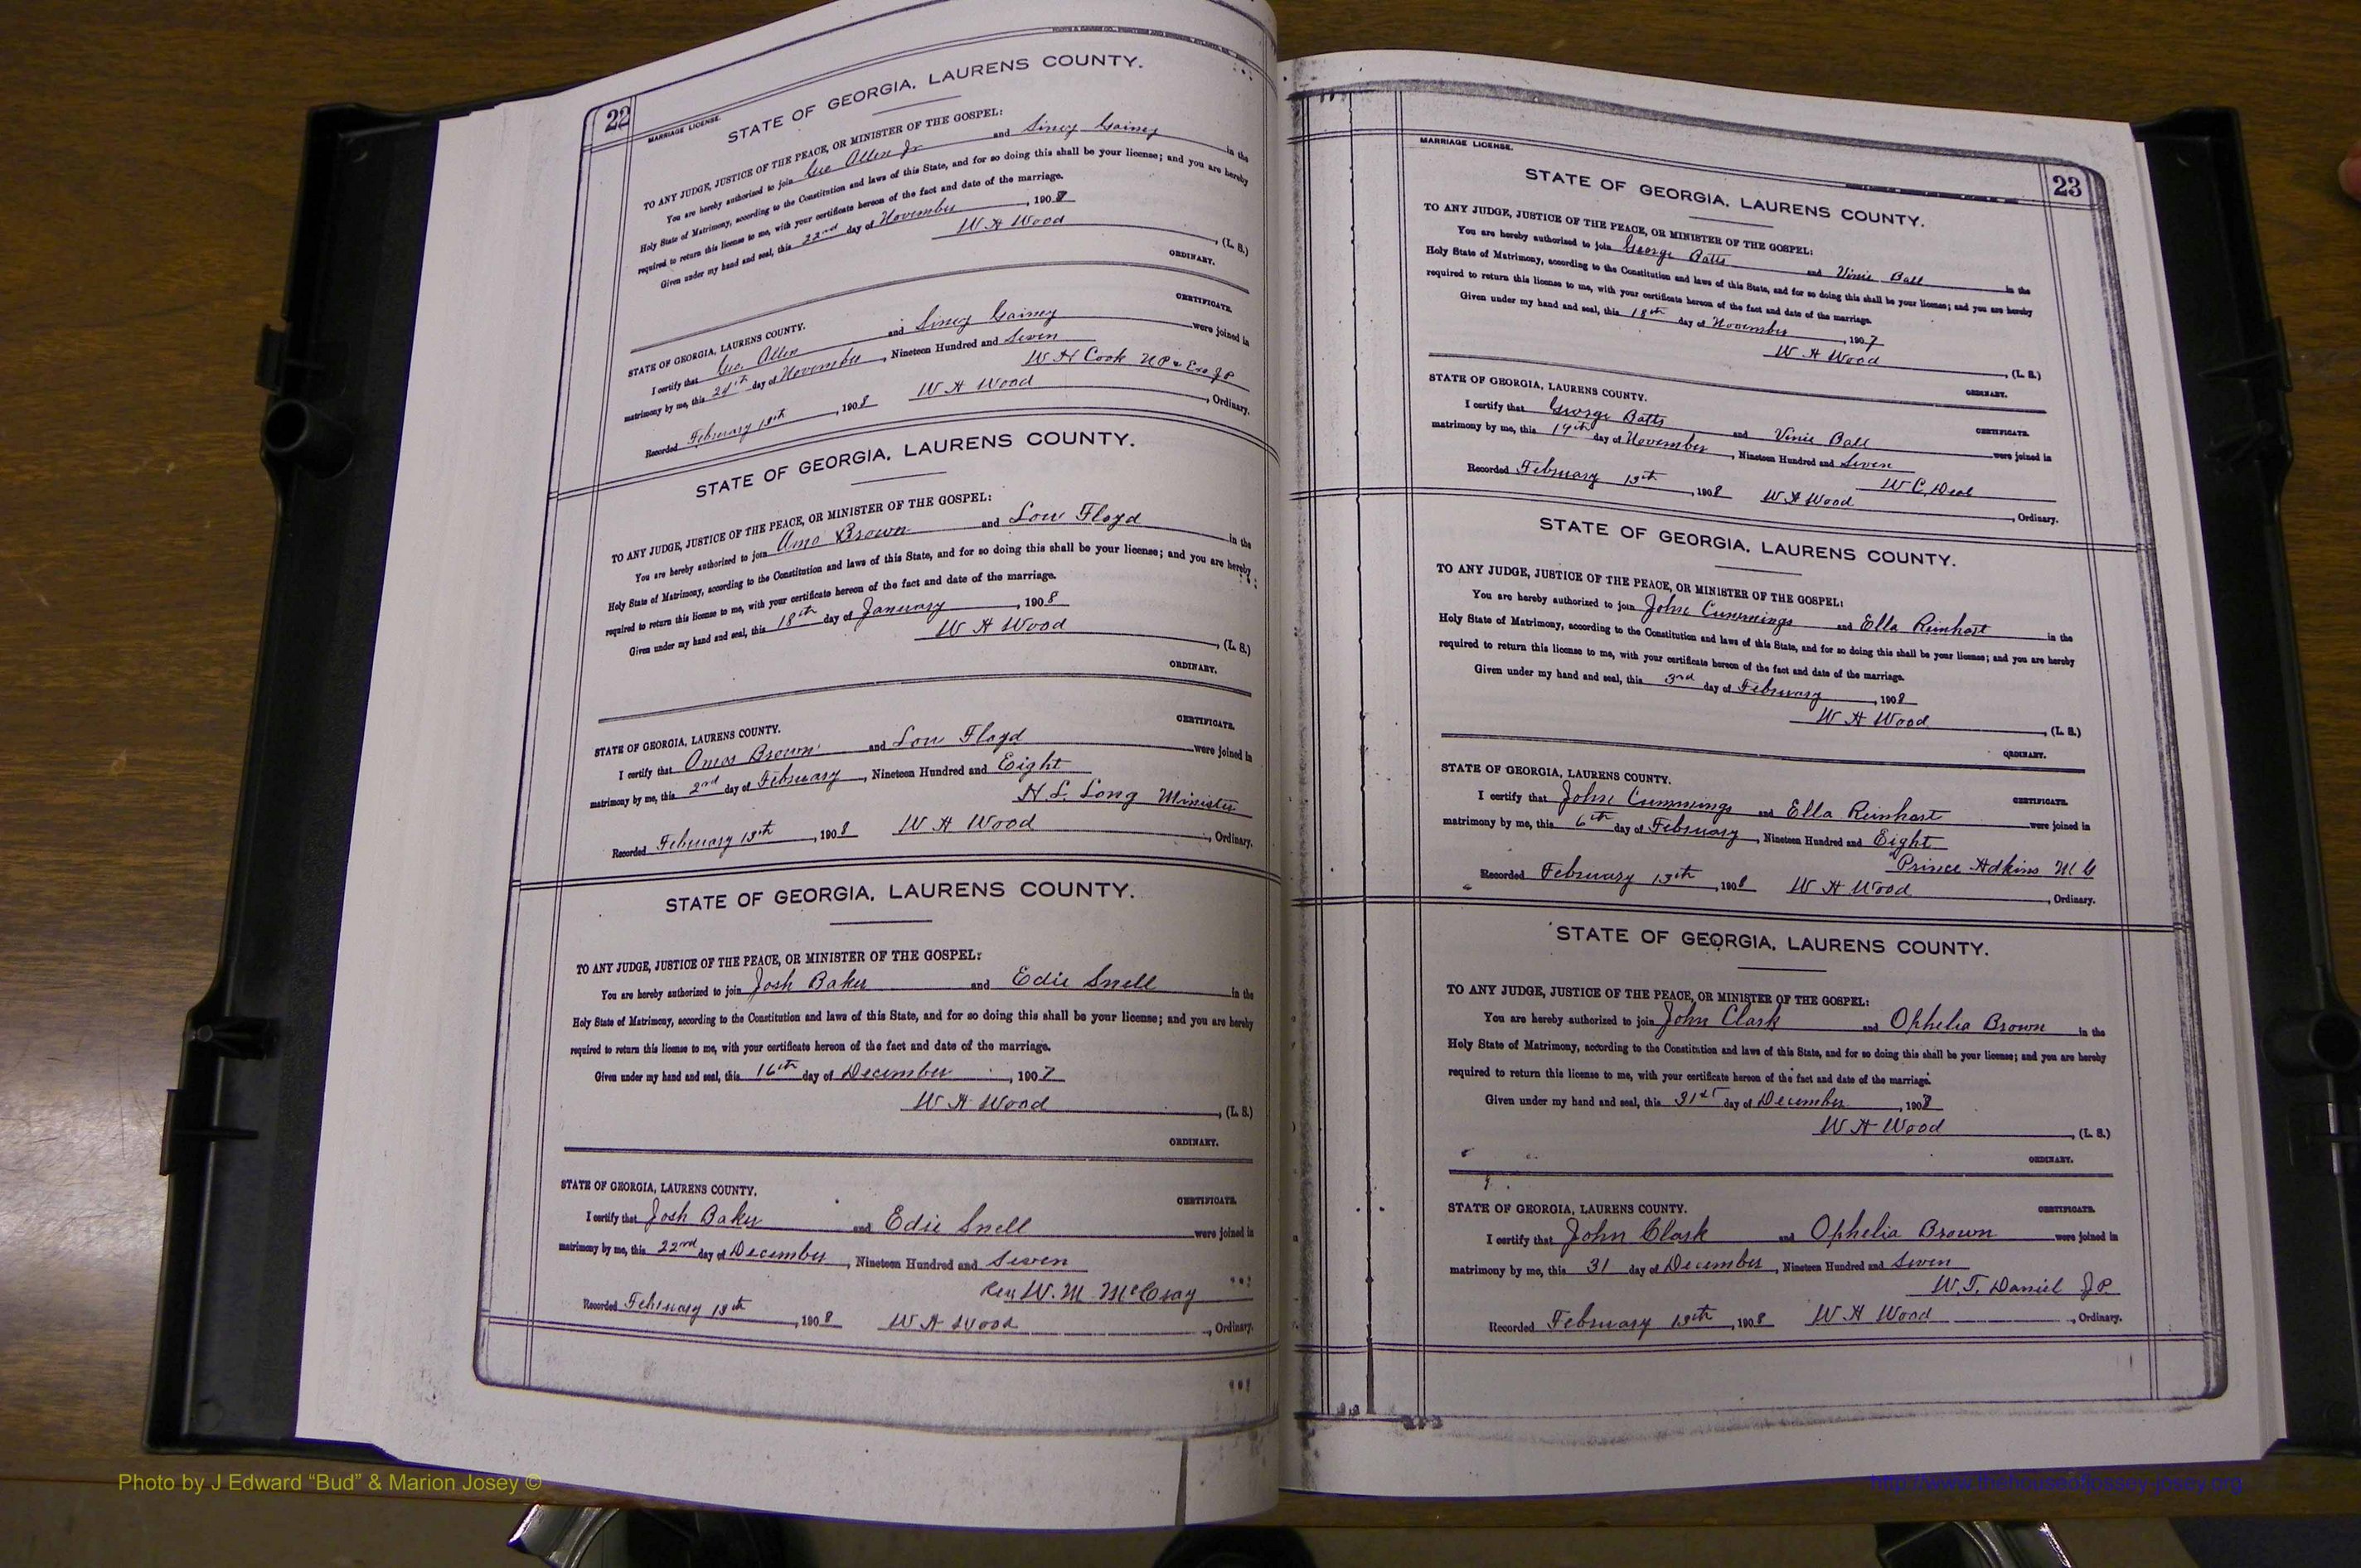 22
MARRIAGE LICENSE.
STATE OF GEORGIA, LAURENS COUNTY.
TO ANY JUDGE, JUSTICE OF THE PEACE, OR MINISTER OF THE GOSPEL:
You are hereby authorized to join Geo Allen Jr and Sincy Gainey in the
Holy State of Matrimony, according to the Constitution and laws of this State, and for so doing this shall be your license; and you are hereby
required to return this license to me, with your certificate hereon of the fact and date of the marriage.
Given under my hand and seal, this 22nd day of November, 1908
W A Wood, (L. S.)
ORDINARY.
CERTIFICATE.
STATE OF GEORGIA, LAURENS COUNTY.
I certify that Geo. Allen and Sincy Gainey were joined in
matrimony by me, this 24th day of November, Nineteen Hundred and Seven
W H Cook
Recorded February 13th, 1908 W A Wood, Ordinary.
STATE OF GEORGIA, LAURENS COUNTY.
TO ANY JUDGE, JUSTICE OF THE PEACE, OR MINISTER OF THE GOSPEL:
You are hereby authorized to join Amo Brown and Lou Floyd in the
Holy State of Matrimony, according to the Constitution and laws of this State, and for so doing this shall be your license; and you are hereby
required to return this license to me, with your certificate hereon of the fact and date of the marriage.
Given under my hand and seal, this 18th day of January, 1908
W A Wood, (L. S.)
ORDINARY.
CERTIFICATE.
STATE OF GEORGIA, LAURENS COUNTY.
I certify that Amos Brown and Lou Floyd were joined in
matrimony by me, this 2nd day of February, Nineteen Hundred and Eight
H L Long Minister
Recorded February 13th, 1908 W A Wood, Ordinary.
STATE OF GEORGIA, LAURENS COUNTY.
TO ANY JUDGE, JUSTICE OF THE PEACE, OR MINISTER OF THE GOSPEL:
You are hereby authorized to join Josh Baker and Edie Snell in the
Holy State of Matrimony, according to the Constitution and laws of this State, and for so doing this shall be your license; and you are hereby
required to return this license to me, with your certificate hereon of the fact and date of the marriage.
Given under my hand and seal, this 16th day of December, 1907
W A Wood, (L. S.)
ORDINARY.
STATE OF GEORGIA, LAURENS COUNTY.
CERTIFICATE.
I certify that Josh Baker and Edie Snell were joined in
matrimony by me, this 22nd day of December, Nineteen Hundred and Seven
Rev W. M McCray
Recorded February 13th, 1908 W A Wood, Ordinary.
MARRIAGE LICENSE.
23
STATE OF GEORGIA, LAURENS COUNTY.
TO ANY JUDGE, JUSTICE OF THE PEACE, OR MINISTER OF THE GOSPEL:
You are hereby authorized to join George Batts and Vinie Ball in the
Holy State of Matrimony, according to the Constitution and laws of this State, and for so doing this shall be your license; and you are hereby
required to return this license to me, with your certificate hereon of the fact and date of the marriage.
Given under my hand and seal, this 18th day of November, 1907
W A Wood, (L. S.)
ORDINARY.
STATE OF GEORGIA, LAURENS COUNTY.
CERTIFICATE.
I certify that George Batts and Vinie Ball were joined in
matrimony by me, this 19th day of November, Nineteen Hundred and Seven
W C Deal
Recorded February 13th, 1908 W A Wood, Ordinary.
STATE OF GEORGIA, LAURENS COUNTY.
TO ANY JUDGE, JUSTICE OF THE PEACE, OR MINISTER OF THE GOSPEL:
You are hereby authorized to join John Cummings and Ella Reinhart in the
Holy State of Matrimony, according to the Constitution and laws of this State, and for so doing this shall be your license; and you are hereby
required to return this license to me, with your certificate hereon of the fact and date of the marriage.
Given under my hand and seal, this 3rd day of February, 1908
W A Wood, (L. S.)
ORDINARY.
STATE OF GEORGIA, LAURENS COUNTY.
CERTIFICATE.
I certify that John Cummings and Ella Reinhart were joined in
matrimony by me, this 6th day of February, Nineteen Hundred and Eight
Prince Adkins M G
Recorded February 13th, 1908 W A Wood, Ordinary.
STATE OF GEORGIA, LAURENS COUNTY.
TO ANY JUDGE, JUSTICE OF THE PEACE, OR MINISTER OF THE GOSPEL:
You are hereby authorized to join John Clark and Ophelia Brown in the
Holy State of Matrimony, according to the Constitution and laws of this State, and for so doing this shall be your license; and you are hereby
required to return this license to me, with your certificate hereon of the fact and date of the marriage.
Given under my hand and seal, this 31st day of December, 190
W A Wood, (L. S.)
ORDINARY.
STATE OF GEORGIA, LAURENS COUNTY.
CERTIFICATE.
I certify that John Clark and Ophelia Brown were joined in
matrimony by me, this 31 day of December, Nineteen Hundred and Seven
W. T. Daniel J P.
Recorded February 13th, 1908 W A Wood, Ordinary.
Photo by J Edward “Bud” & Marion Josey ©
http://www.thehouseofjossey-josey.org